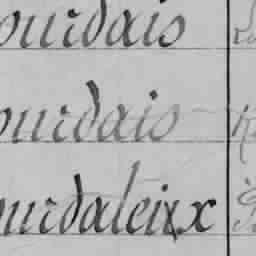 ourdais
ourdais
ourdaleix